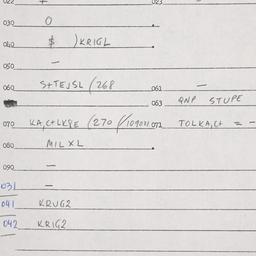 030 0
040 $ )KRIGL
050 —
060 S+TEJSL (268 061 —
063 QNP STUPE
070 KA,C+LKQE (270 072 TOLKA,C+ = -
080 MILXL
090 —
031 —
041 KRUG2
042 KRIG2